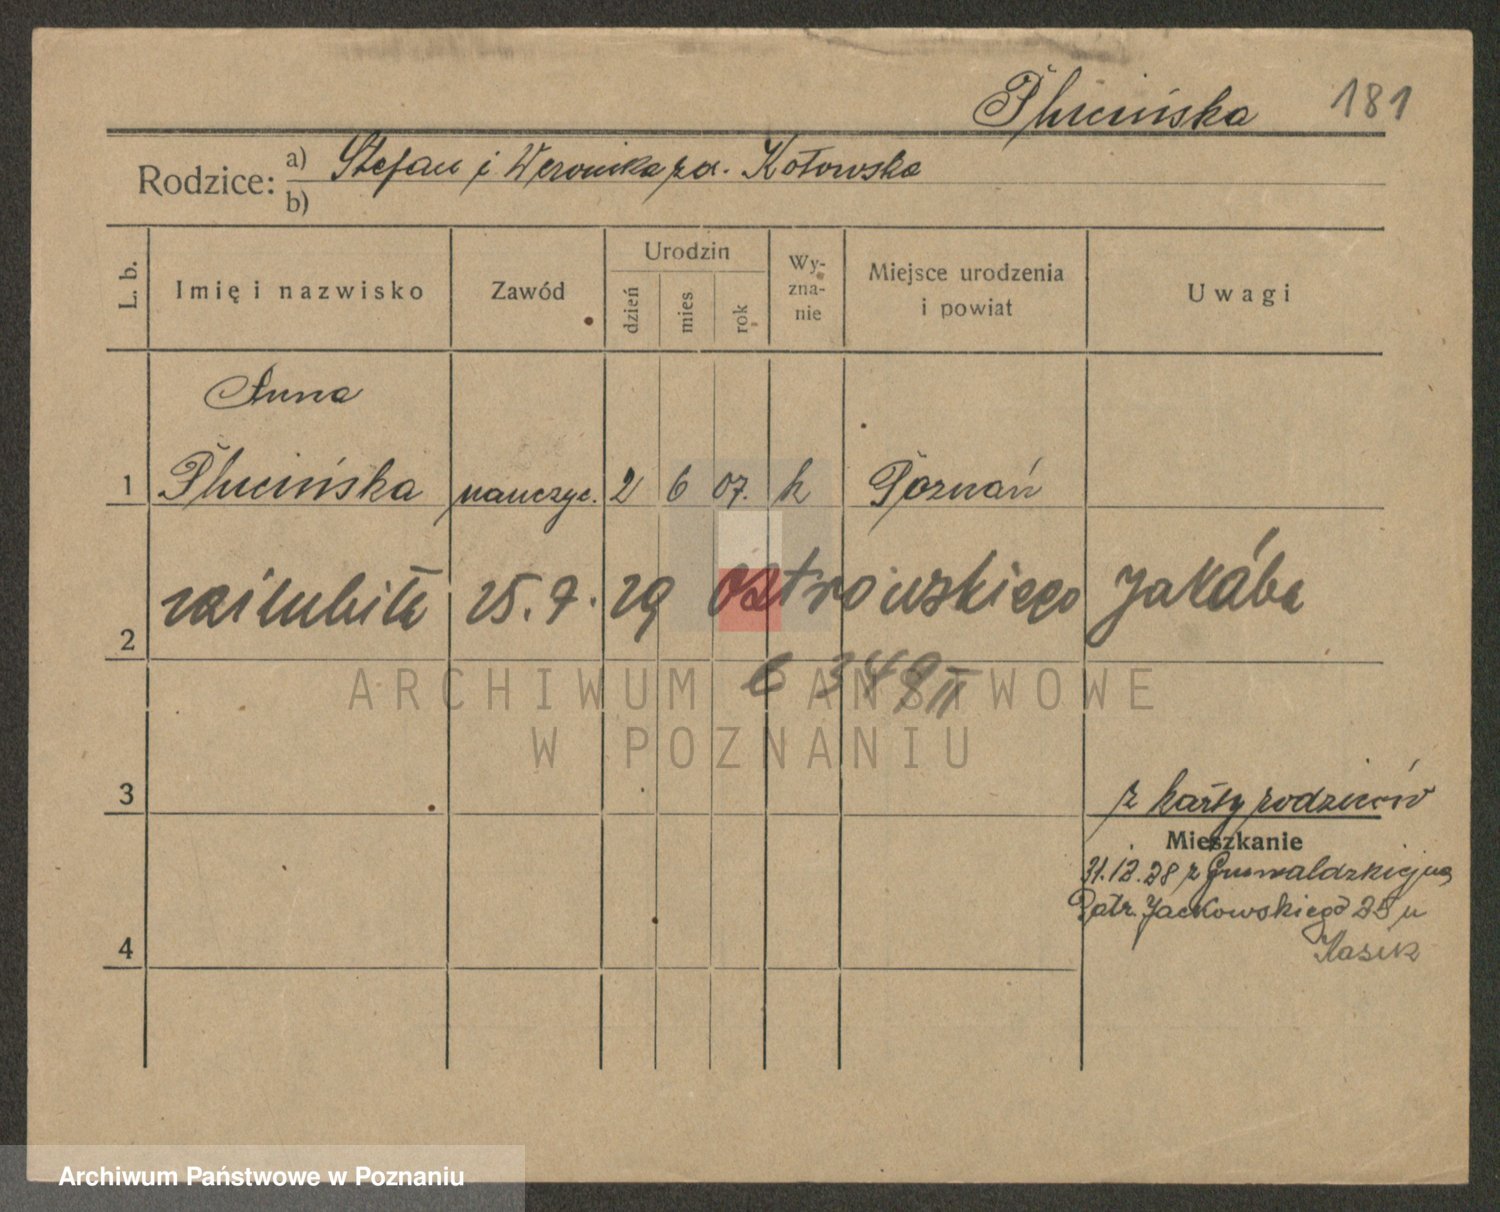 Plucińska 181
Rodzice: a) Stefan i Weronika za. Kołowska
b)
L. b. Imię i nazwisko Zawód Urodzin dzień mies rok Wyznanie Miejsce urodzenia i powiat Uwagi
Anna
1 Plucińska nauczyc. 2 6 07. k Poznań
2 zaślubiła 25. 9. 29 Ostrowskiego Jakóba
349 II
ARCHIWUM PAŃSTWOWE
W POZNANIU
3 z karty rodziców
Mieszkanie
31.12.28 z Grunwaldzkiej na
Patr. Jackowskiego 25 u
4 Kasik
Archiwum Państwowe w Poznaniu